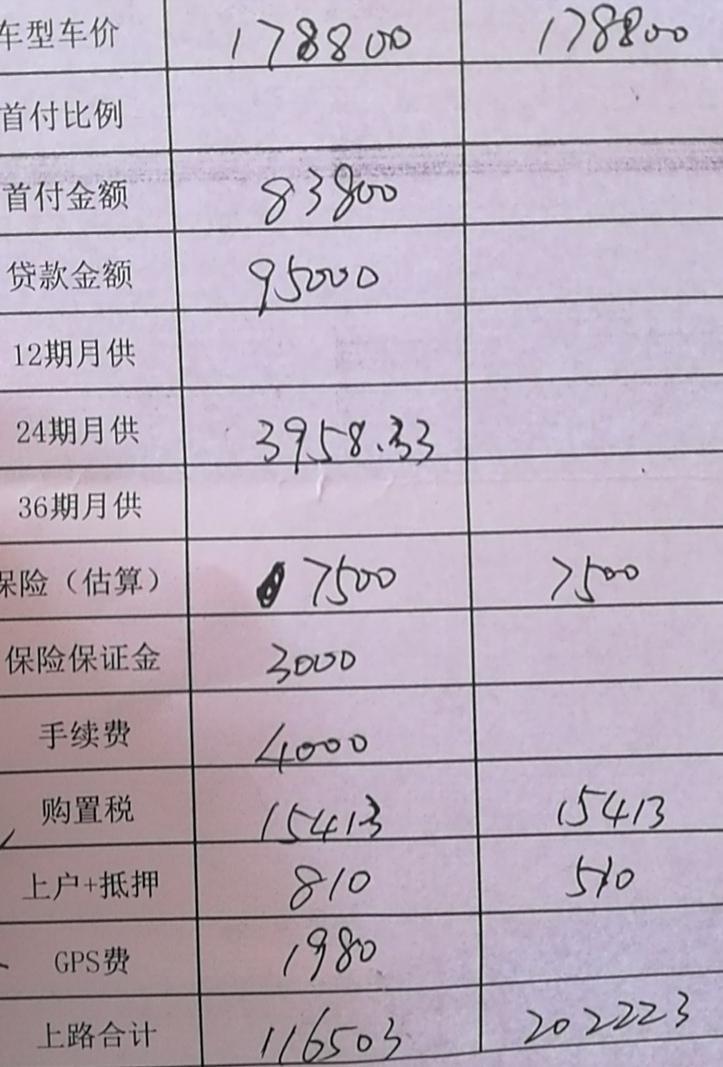 车型车价 178800 178800
首付比例
首付金额 83800
贷款金额 95000
12期月供
24期月供 3958.33
36期月供
保险（估算） 7500 7500
保险保证金 3000
手续费 4000
购置税 15413 15413
上户+抵押 810 510
GPS费 1980
上路合计 116503 202223